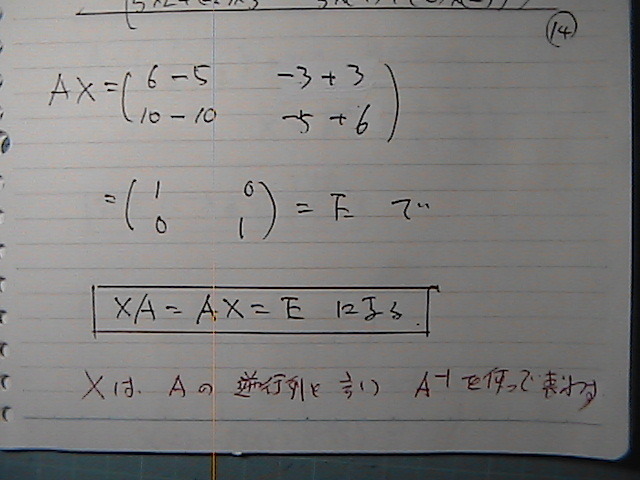 (14)
AX = ( 6-5 -3+3
10-10 -5+6 )
= ( 1 0
0 1 ) = E で
XA = AX = E になる.
Xは、Aの逆行列と言い A⁻¹を使って表わす